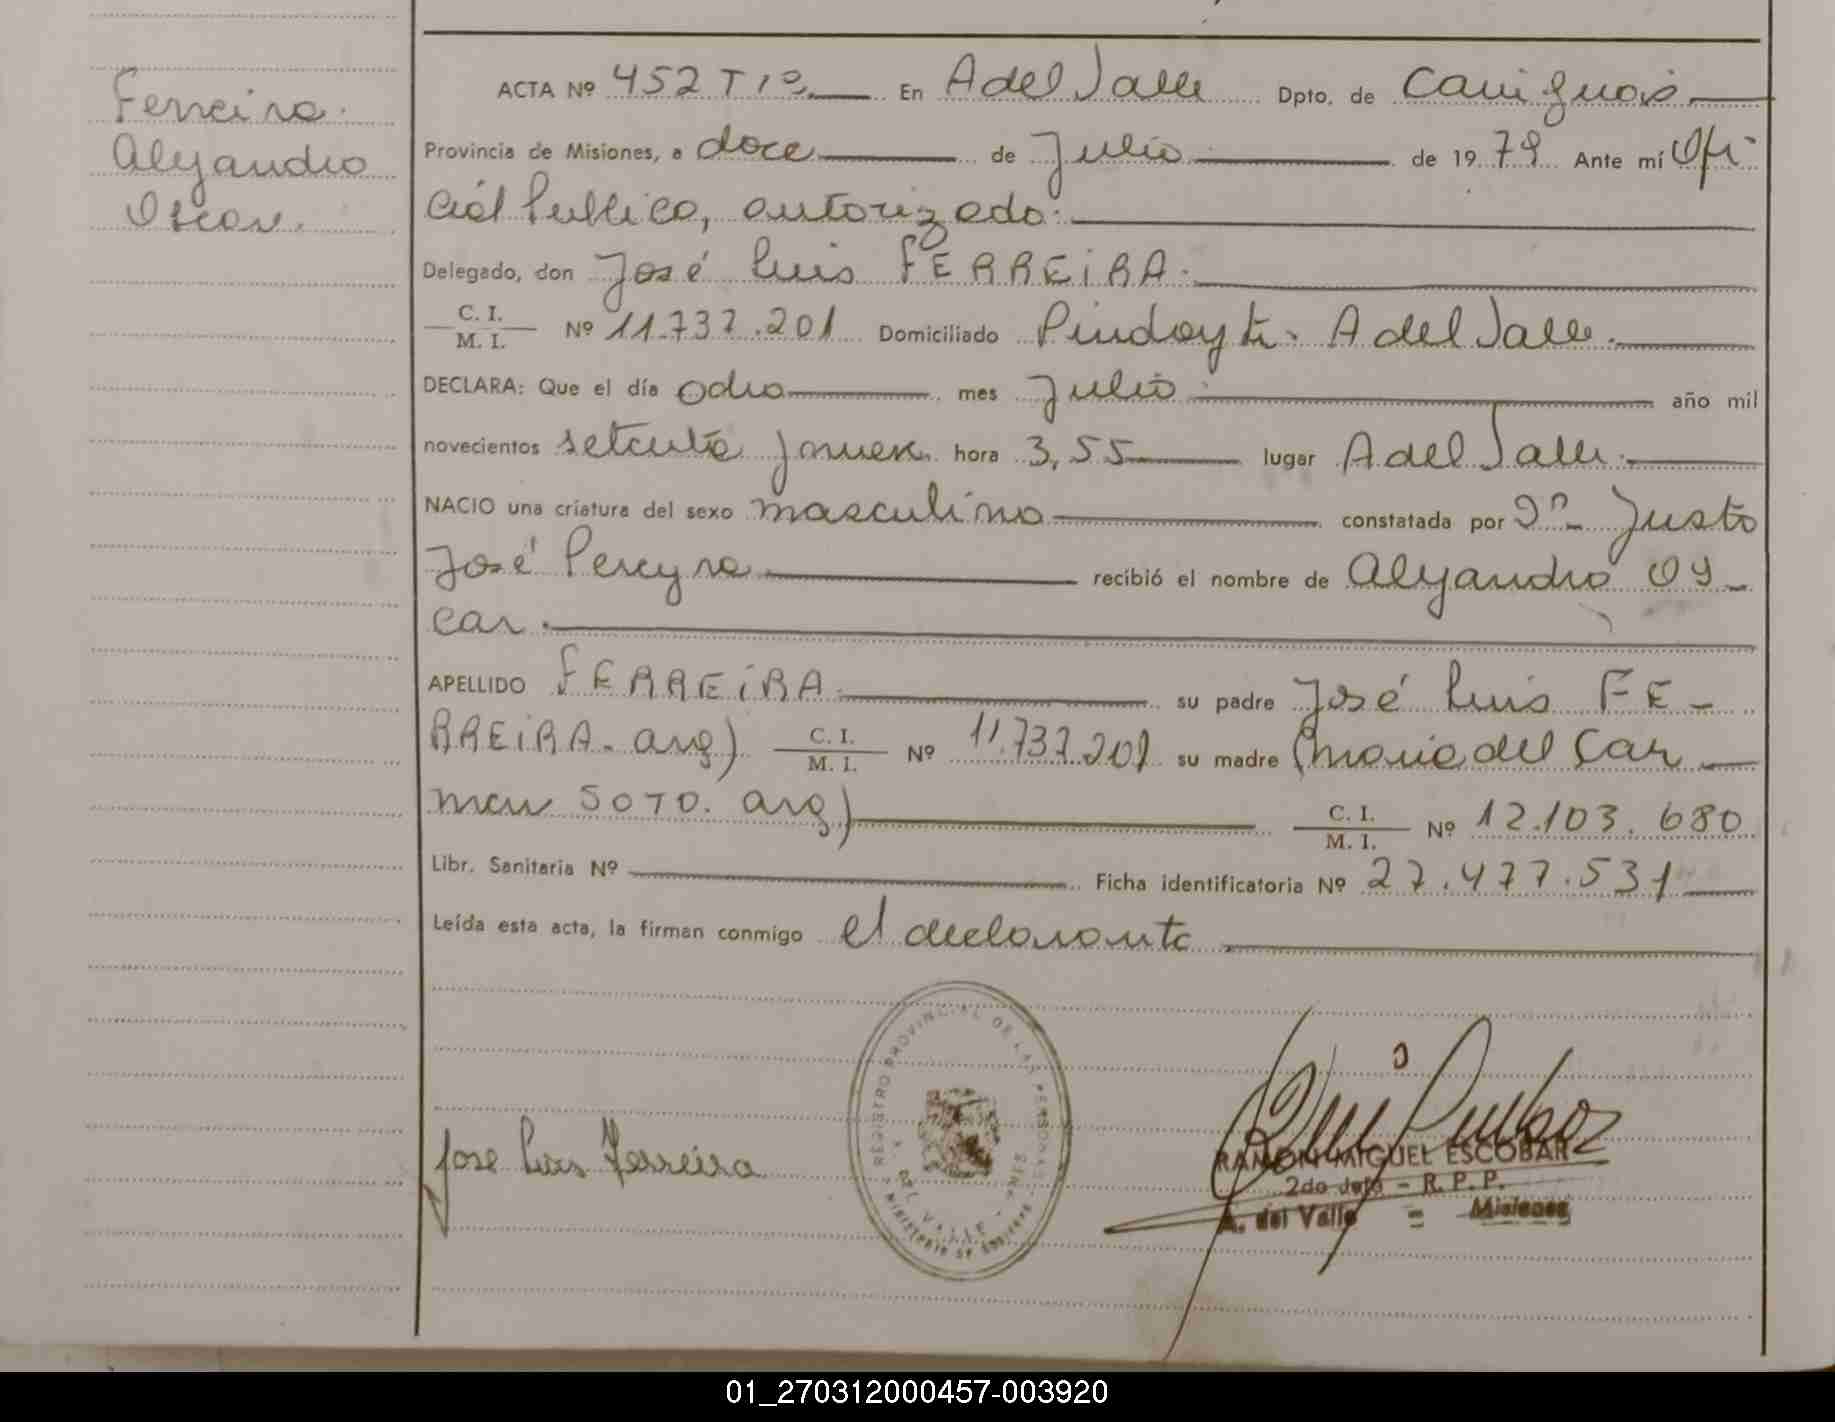 Ferreira.
Alejandro
Oscar.
ACTA Nº 452 T 1º. En A del Valle Dpto. de Cainguás
Provincia de Misiones, a doce de Julio de 1979 Ante mí Ofi
cial Publico, autorizado:
Delegado, don José Luis FERREIRA.
C. I.
M. I. Nº 11.737.201 Domiciliado Pindayti. A del Valle.
DECLARA: Que el día ocho mes Julio año mil
novecientos setenta y nueve hora 3,55 lugar A del Valle.
NACIO una criatura del sexo masculino constatada por Dn Justo
José Pereyra recibió el nombre de Alejandro Os-
car.
APELLIDO FERREIRA su padre José Luis FE-
RREIRA. arg) C. I.
M. I. Nº 11.737.201 su madre (Maria del Car
men SOTO. arg) C. I.
M. I. Nº 12.103.680
Libr. Sanitaria Nº Ficha identificatoria Nº 27.477.531
Leída esta acta, la firman conmigo el declarante
REGISTRO PROVINCIAL DE LAS PERSONAS
A. DEL VALLE - MNES
MINISTERIO DE GOBIERNO
Jose Luis Ferreira
RAMON MIGUEL ESCOBAR
2do Jefe - R. P. P.
A. del Valle - Misiones
01_270312000457-003920